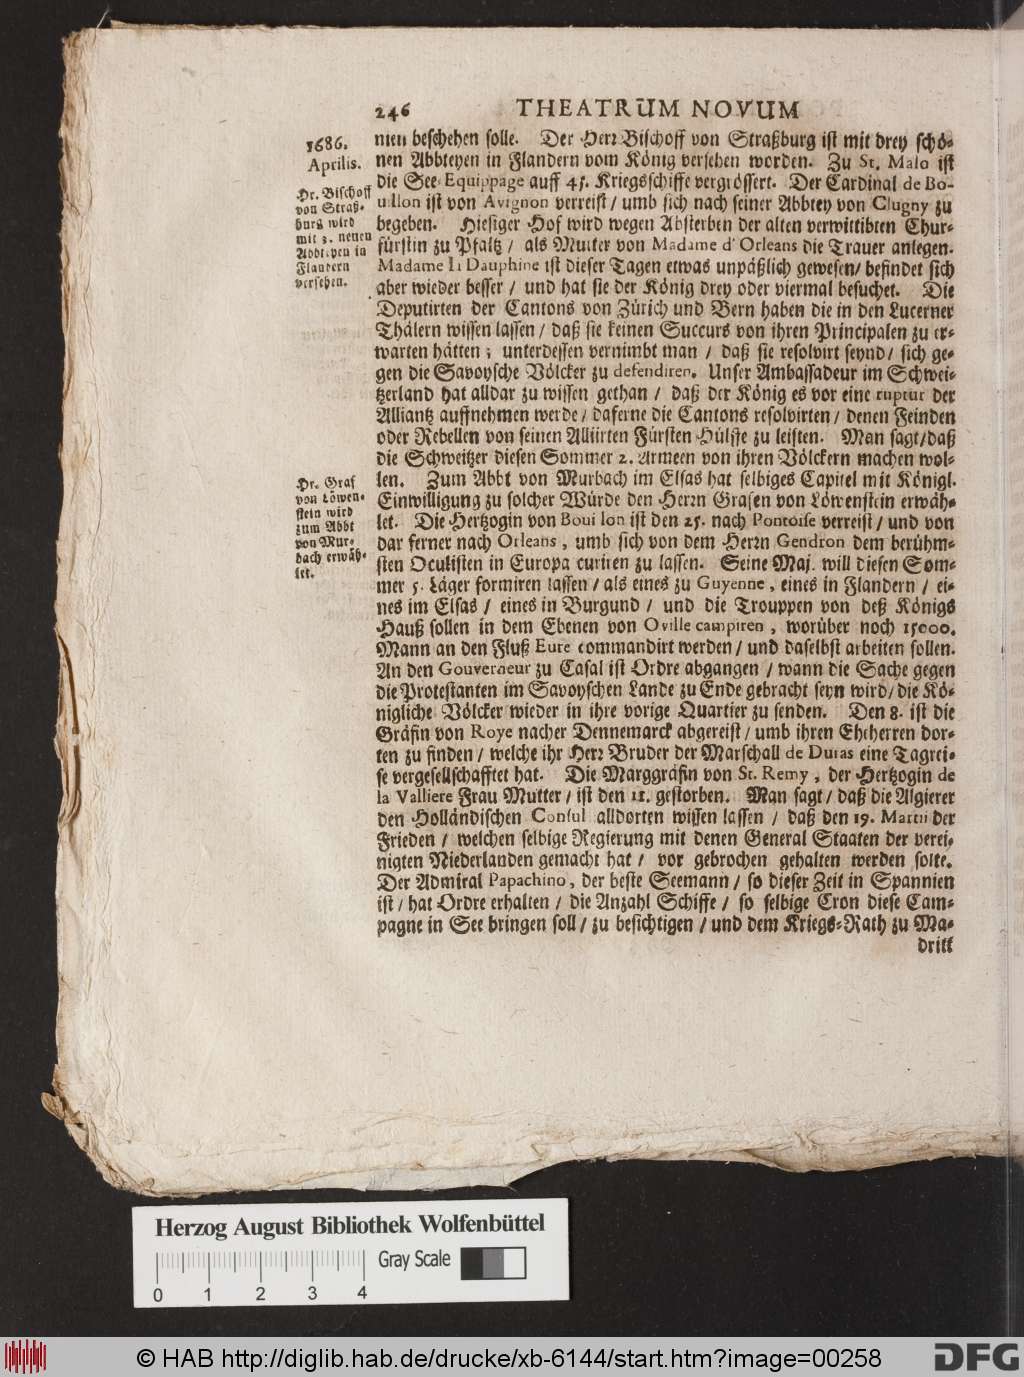 246 THEATRUM NOVUM
1686.
Aprilis.
Hr. Bischoff
von Straß-
burg wird
mit 3. neuen
Abbteyen in
Flandern
versehen.
nien beschehen solle. Der Herr Bischoff von Straßburg ist mit drey schö-
nen Abbteyen in Flandern vom König versehen worden. Zu St. Malo ist
die See-Equippage auff 45. Kriegsschiffe vergrössert. Der Cardinal de Bo-
uillon ist von Avignon verreist / umb sich nach seiner Abbtey von Clugny zu
begeben. Hiesiger Hof wird wegen Absterben der alten verwittibten Chur-
fürstin zu Pfaltz / als Mutter von Madame d'Orleans die Trauer anlegen.
Madame la Dauphine ist dieser Tagen etwas unpäßlich gewesen / befindet sich
aber wieder besser / und hat sie der König drey oder viermal besuchet. Die
Deputirten der Cantons von Zürich und Bern haben die in den Lucerner
Thälern wissen lassen / daß sie keinen Succurs von ihren Principalen zu er-
warten hätten ; unterdessen vernimbt man / daß sie resolvirt seynd / sich ge-
gen die Savoysche Völcker zu defendiren. Unser Ambassadeur im Schwei-
tzerland hat alldar zu wissen gethan / daß der König es vor eine ruptur der
Alliantz auffnehmen werde / daferne die Cantons resolvirten / denen Feinden
oder Rebellen von seinen Alliirten Fürsten Hülffe zu leisten. Man sagt / daß
die Schweitzer diesen Sommer 2. Armeen von ihren Völckern machen wol-
len. Zum Abbt von Murbach im Elsas hat selbiges Capitel mit Königl.
Einwilligung zu solcher Würde den Herrn Grafen von Löwenstein erwäh-
let. Die Hertzogin von Bouillon ist den 25. nach Pontoise verreist / und von
dar ferner nach Orleans, umb sich von dem Herrn Gendron dem berühm-
sten Oculisten in Europa curiren zu lassen. Seine Maj. will diesen Som-
mer 5. Läger formiren lassen / als eines zu Guyenne, eines in Flandern / ei-
nes im Elsas / eines in Burgund / und die Trouppen von deß Königs
Hauß sollen in dem Ebenen von Oville campiren, worüber noch 15000.
Mann an den Fluß Eure commandirt werden / und daselbst arbeiten sollen.
An den Gouverneur zu Casal ist Ordre abgangen / wann die Sache gegen
die Protestanten im Savoyschen Lande zu Ende gebracht seyn wird / die Kö-
nigliche Völcker wieder in ihre vorige Quartier zu senden. Den 8. ist die
Gräfin von Roye nacher Dennemarck abgereist / umb ihren Eheherren dor-
ten zu finden / welche ihr Herr Bruder der Marschall de Duras eine Tagrei-
se vergesellschafftet hat. Die Marggräfin von St. Remy, der Hertzogin de
la Valliere Frau Mutter / ist den 11. gestorben. Man sagt / daß die Algierer
den Holländischen Consul alldorten wissen lassen / daß den 19. Martii der
Frieden / welchen selbige Regierung mit denen General Staaten der verei-
nigten Niederlanden gemacht hat / vor gebrochen gehalten werden solte.
Der Admiral Papachino, der beste Seemann / so dieser Zeit in Spannien
ist / hat Ordre erhalten / die Anzahl Schiffe / so selbige Cron diese Cam-
pagne in See bringen soll / zu besichtigen / und dem Kriegs-Rath zu Ma-
dritt
Hr. Graf
von Löwen-
stein wird
zum Abbt
von Mur-
bach erwäh-
let.
Herzog August Bibliothek Wolfenbüttel
Gray Scale
0 1 2 3 4
© HAB http://diglib.hab.de/drucke/xb-6144/start.htm?image=00258
DFG